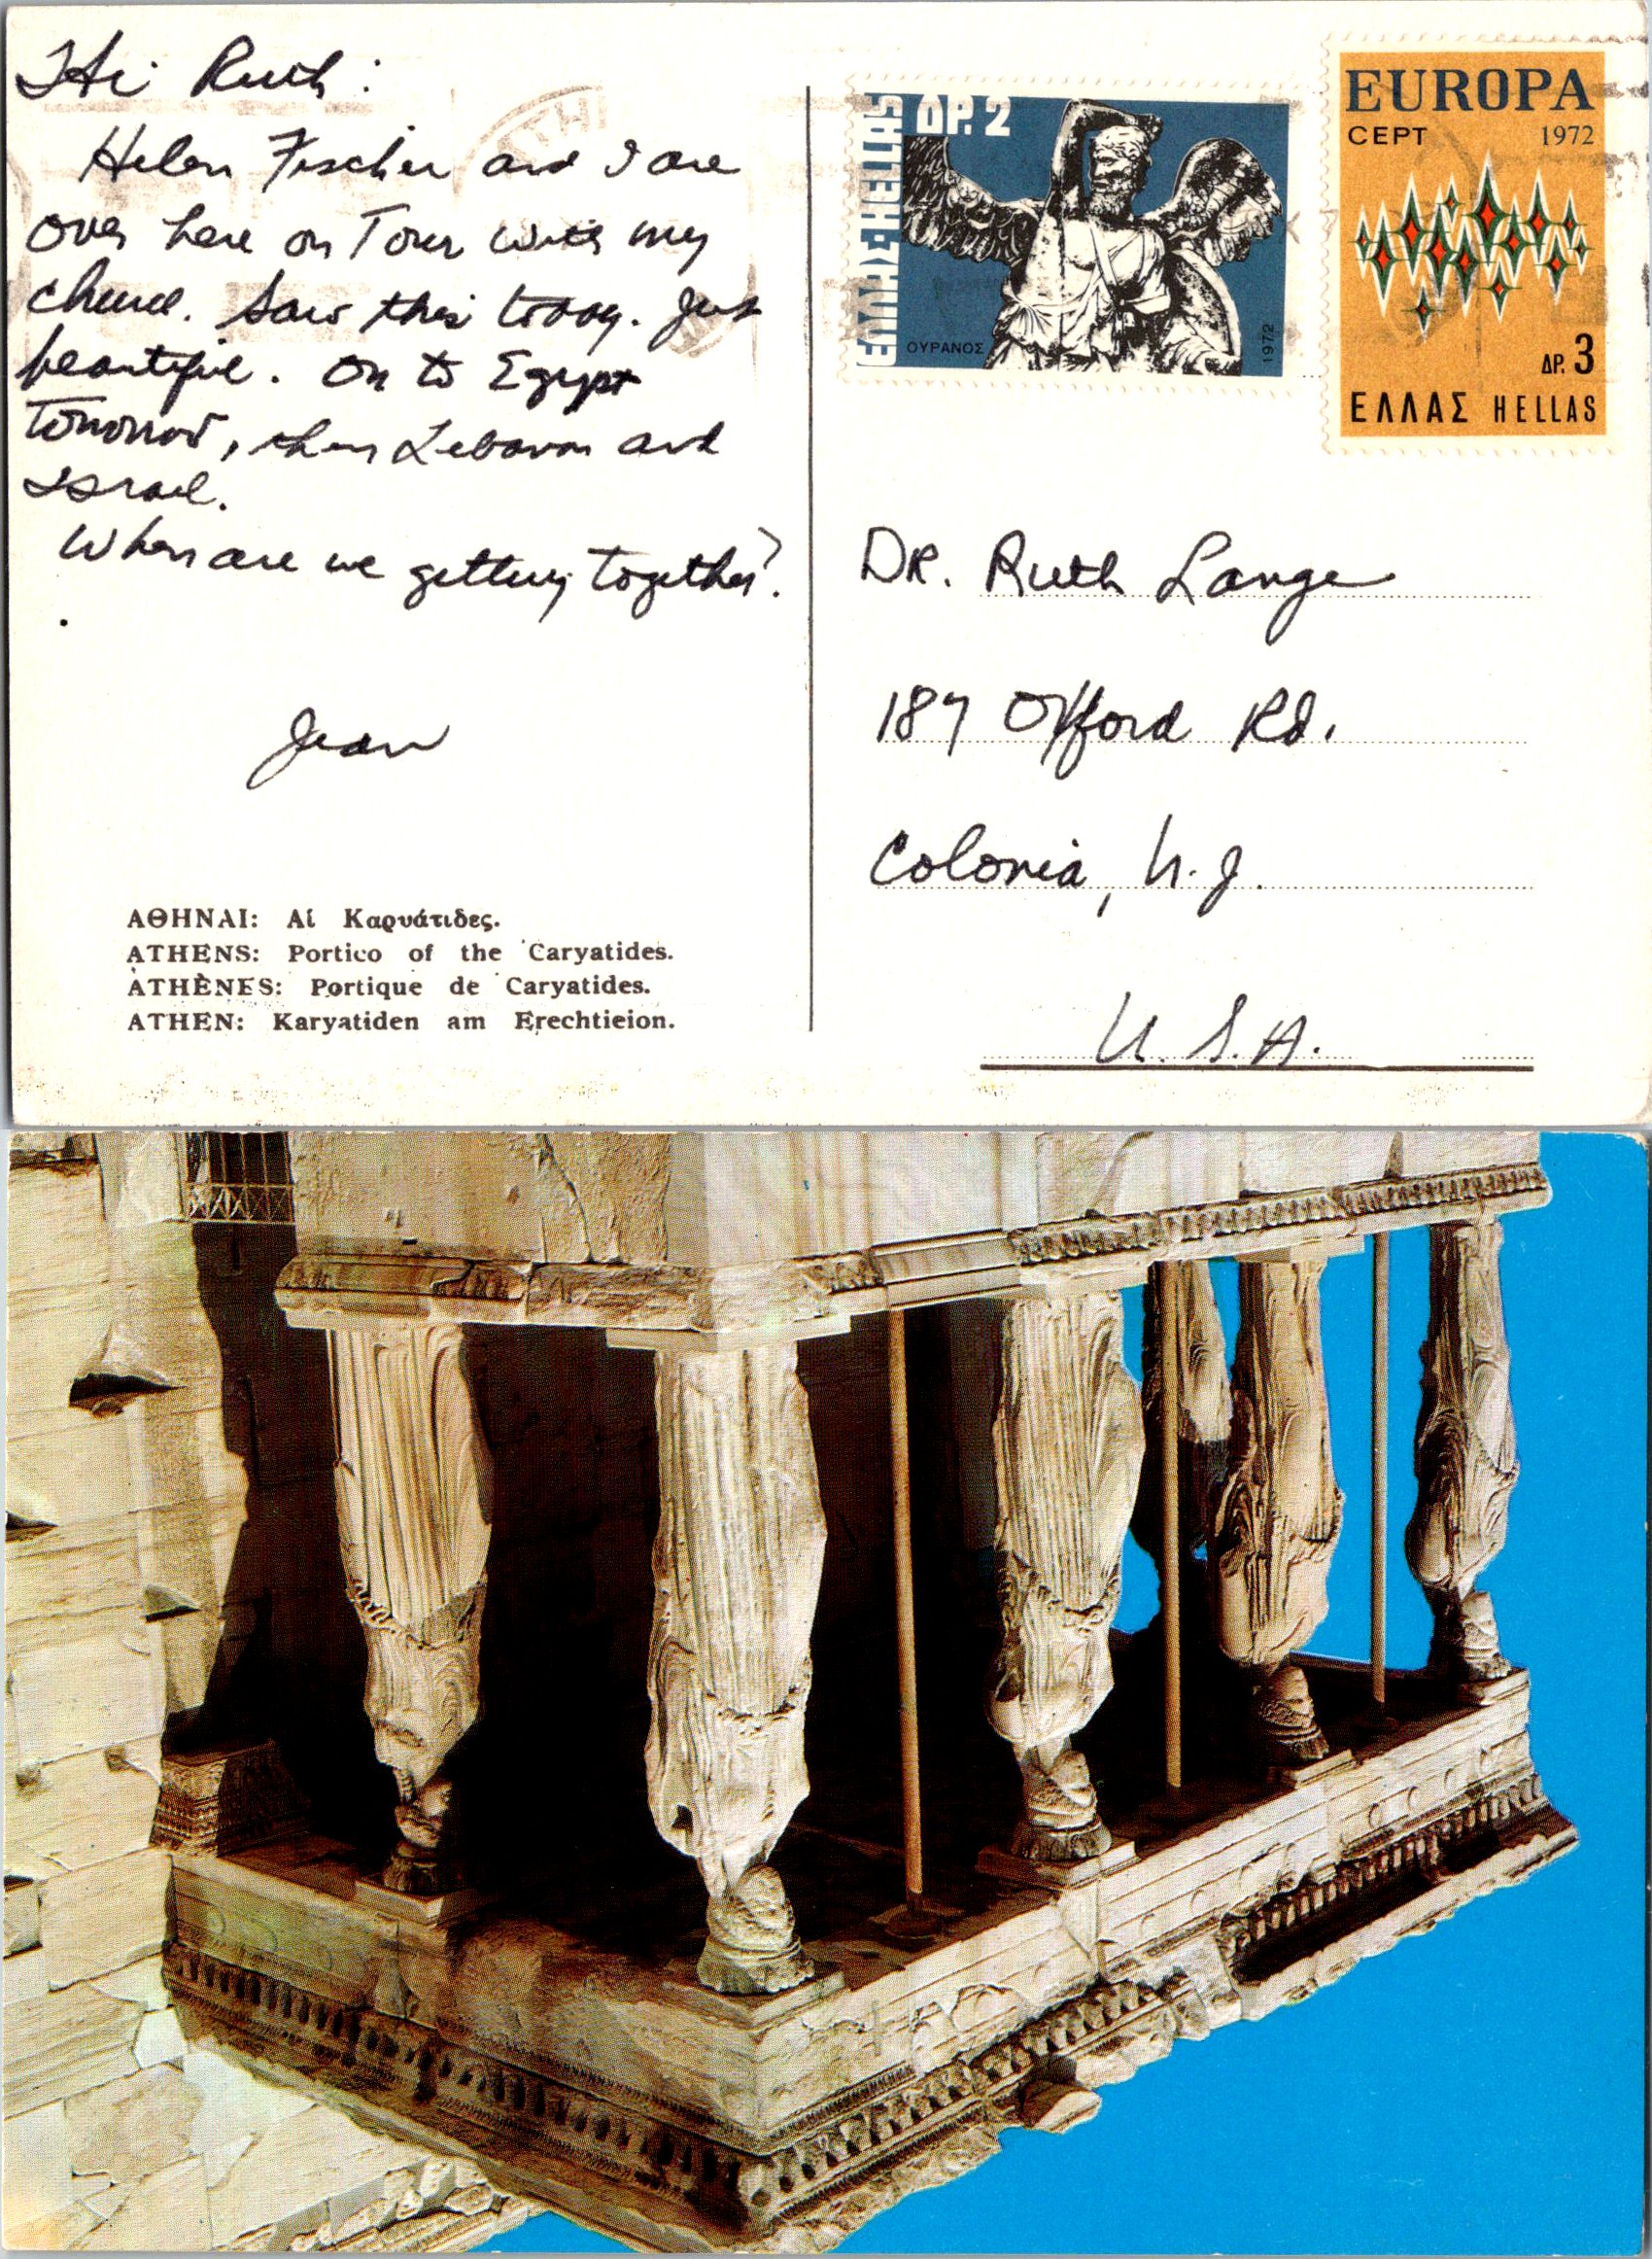 Hi Ruth:
Helen Fischer and I are
over here on Tour with my
church. Saw this today. Just
beautiful. On to Egypt
tomorrow, then Lebanon and
Israel.
When are we getting together?
Jean
ΑΘΗΝΑΙ: Αἱ Καρυάτιδες.
ATHENS: Portico of the Caryatides.
ATHÈNES: Portique de Caryatides.
ATHEN: Karyatiden am Erechtieion.
ΕΛΛΗΣ·HELLAS
ΔΡ. 2
ΟΥΡΑΝΟΣ
1972
EUROPA
CEPT 1972
ΔΡ. 3
ΕΛΛΑΣ HELLAS
DR. Ruth Lange
187 Oxford Rd.
Colonia, N.J.
U.S.A.